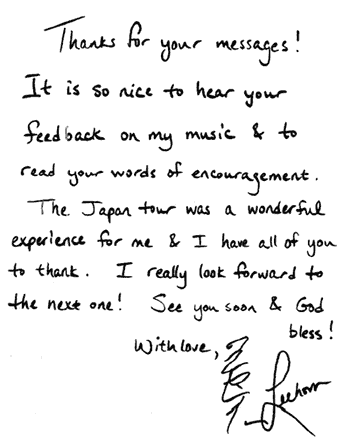 Thanks for your messages!
It is so nice to hear your
feedback on my music & to
read your words of encouragement.
The Japan tour was a wonderful
experience for me & I have all of you
to thank. I really look forward to
the next one! See you soon & God
bless!
With love,
Leehom